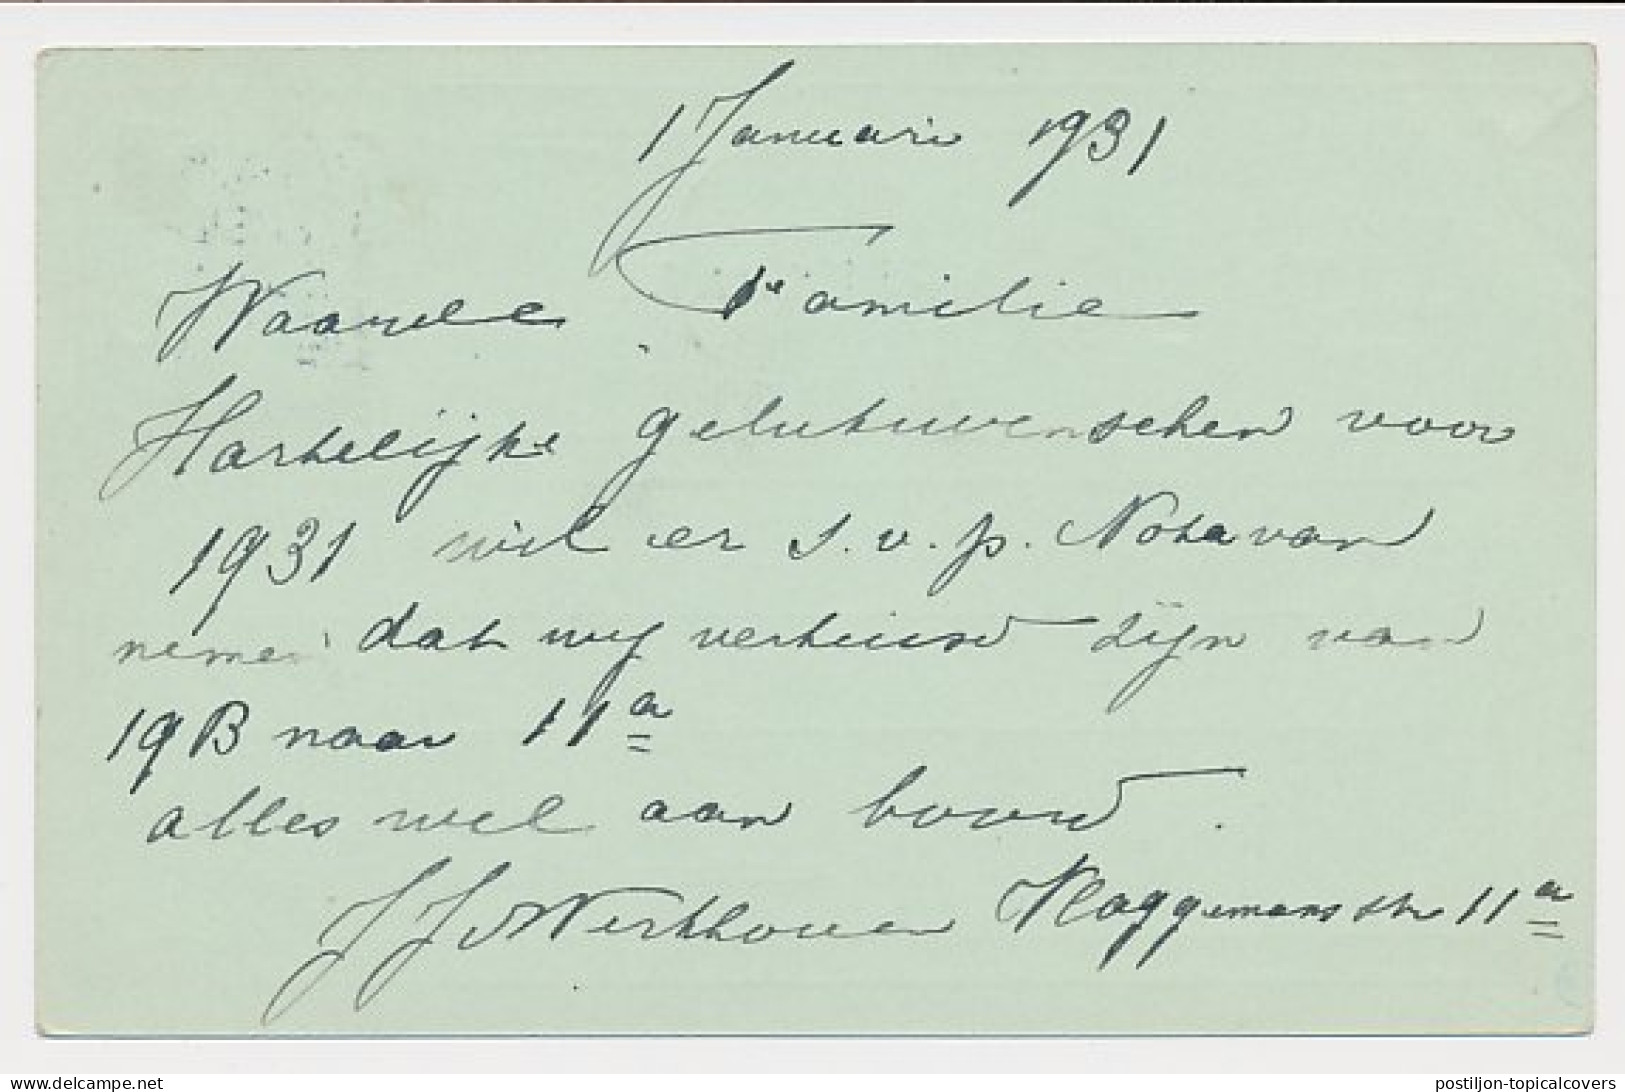 1 Januari 1931
Waarde Familie
Hartelijke gelukwenschen voor
1931 wil er s.v.p. Nota van
nemen dat wij verhuisd zijn van
19 B naar 11a
alles wel aan boord.
J J Werkhoven Vlaggemansstr 11a
postiljon-topicalcovers
www.delcampe.net